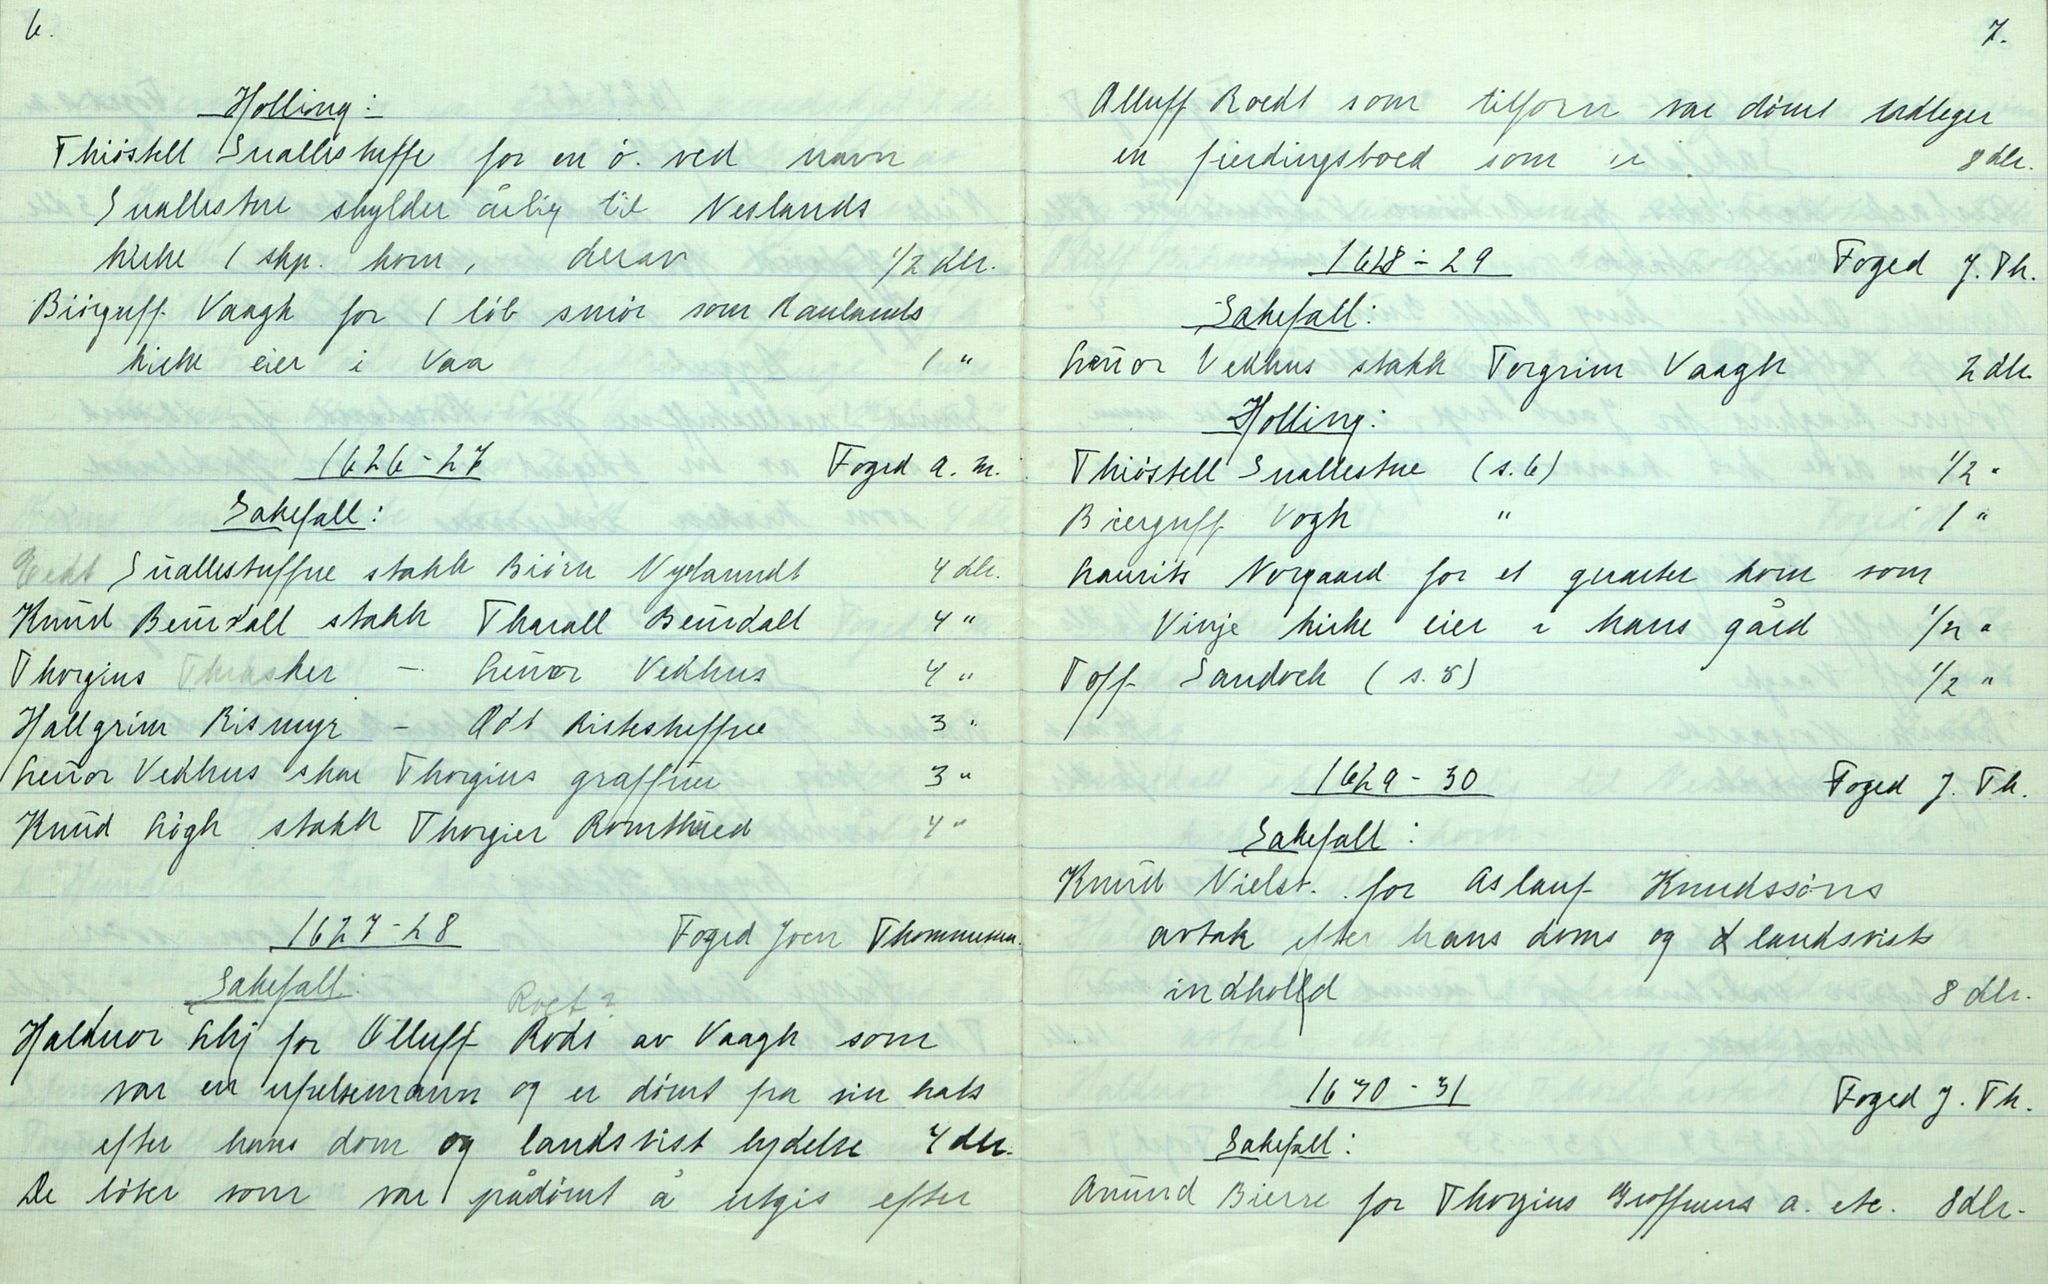 6.
Holling:
Thiøstell Suallestuffe for en ö. ved navn
Suallestue skylder årlig til Neslands
kirke 1 skp. korn, derav 1/2 dlr.
Biörguff Vaagh for 1 löb smör som Raulands
kirke eier i Vaa 1 "
1626-27 Foged A. M.
Sakefall:
Suallestuffue stakk Biörn Nyelanndt 4 dlr.
Knud Beuudall stakk Tharall Beuudall 4 "
Thorgius - Leuor Vedhus 4 "
Hallgrim Rismyr - Odt Risbstuffue 3 "
Leuor Vedhus skar Thorgius graffuer 3 "
Knud Högh stakk Thorgier Romthued 4 "
1627-28 Foged Joen Thommesen.
Sakefall:
Roet?
Halduor Lhj for Olluff Rodt av Vaagh som
var en ufselsemann og er dömt fra sin hals
efter hans dom og landsvist lydelse 4 dlr.
De böter som var pådömt å utgis efter
7.
Alluff Roedt som tilforn var dömt udleger
en fierdingsboed som er 8 dlr.
1628-29 Foged J. Th.
Sakefall:
Leuor Vedhus stakk Torgrim Vaagh 2 dlr.
Holling:
Thiøstell Suallestue (s. 6) 1/2 "
Bierguff Vogh " 1 "
Laurits Norgaard for et quarter korn som
Vinje kirke eier i hans gård 1/2 "
Toff Sandock (s. 5) 1/2 "
1629-30 Foged J. Th.
Sakefall:
Knud Nielss. for Aslauf Knudssöns
avtak efter hans doms og landsvists
indhold 8 dlr.
1630-31 Foged J. Th.
Sakefall:
Amund Bierre for Thorgius Groffuers a. etc. 8 dlr.